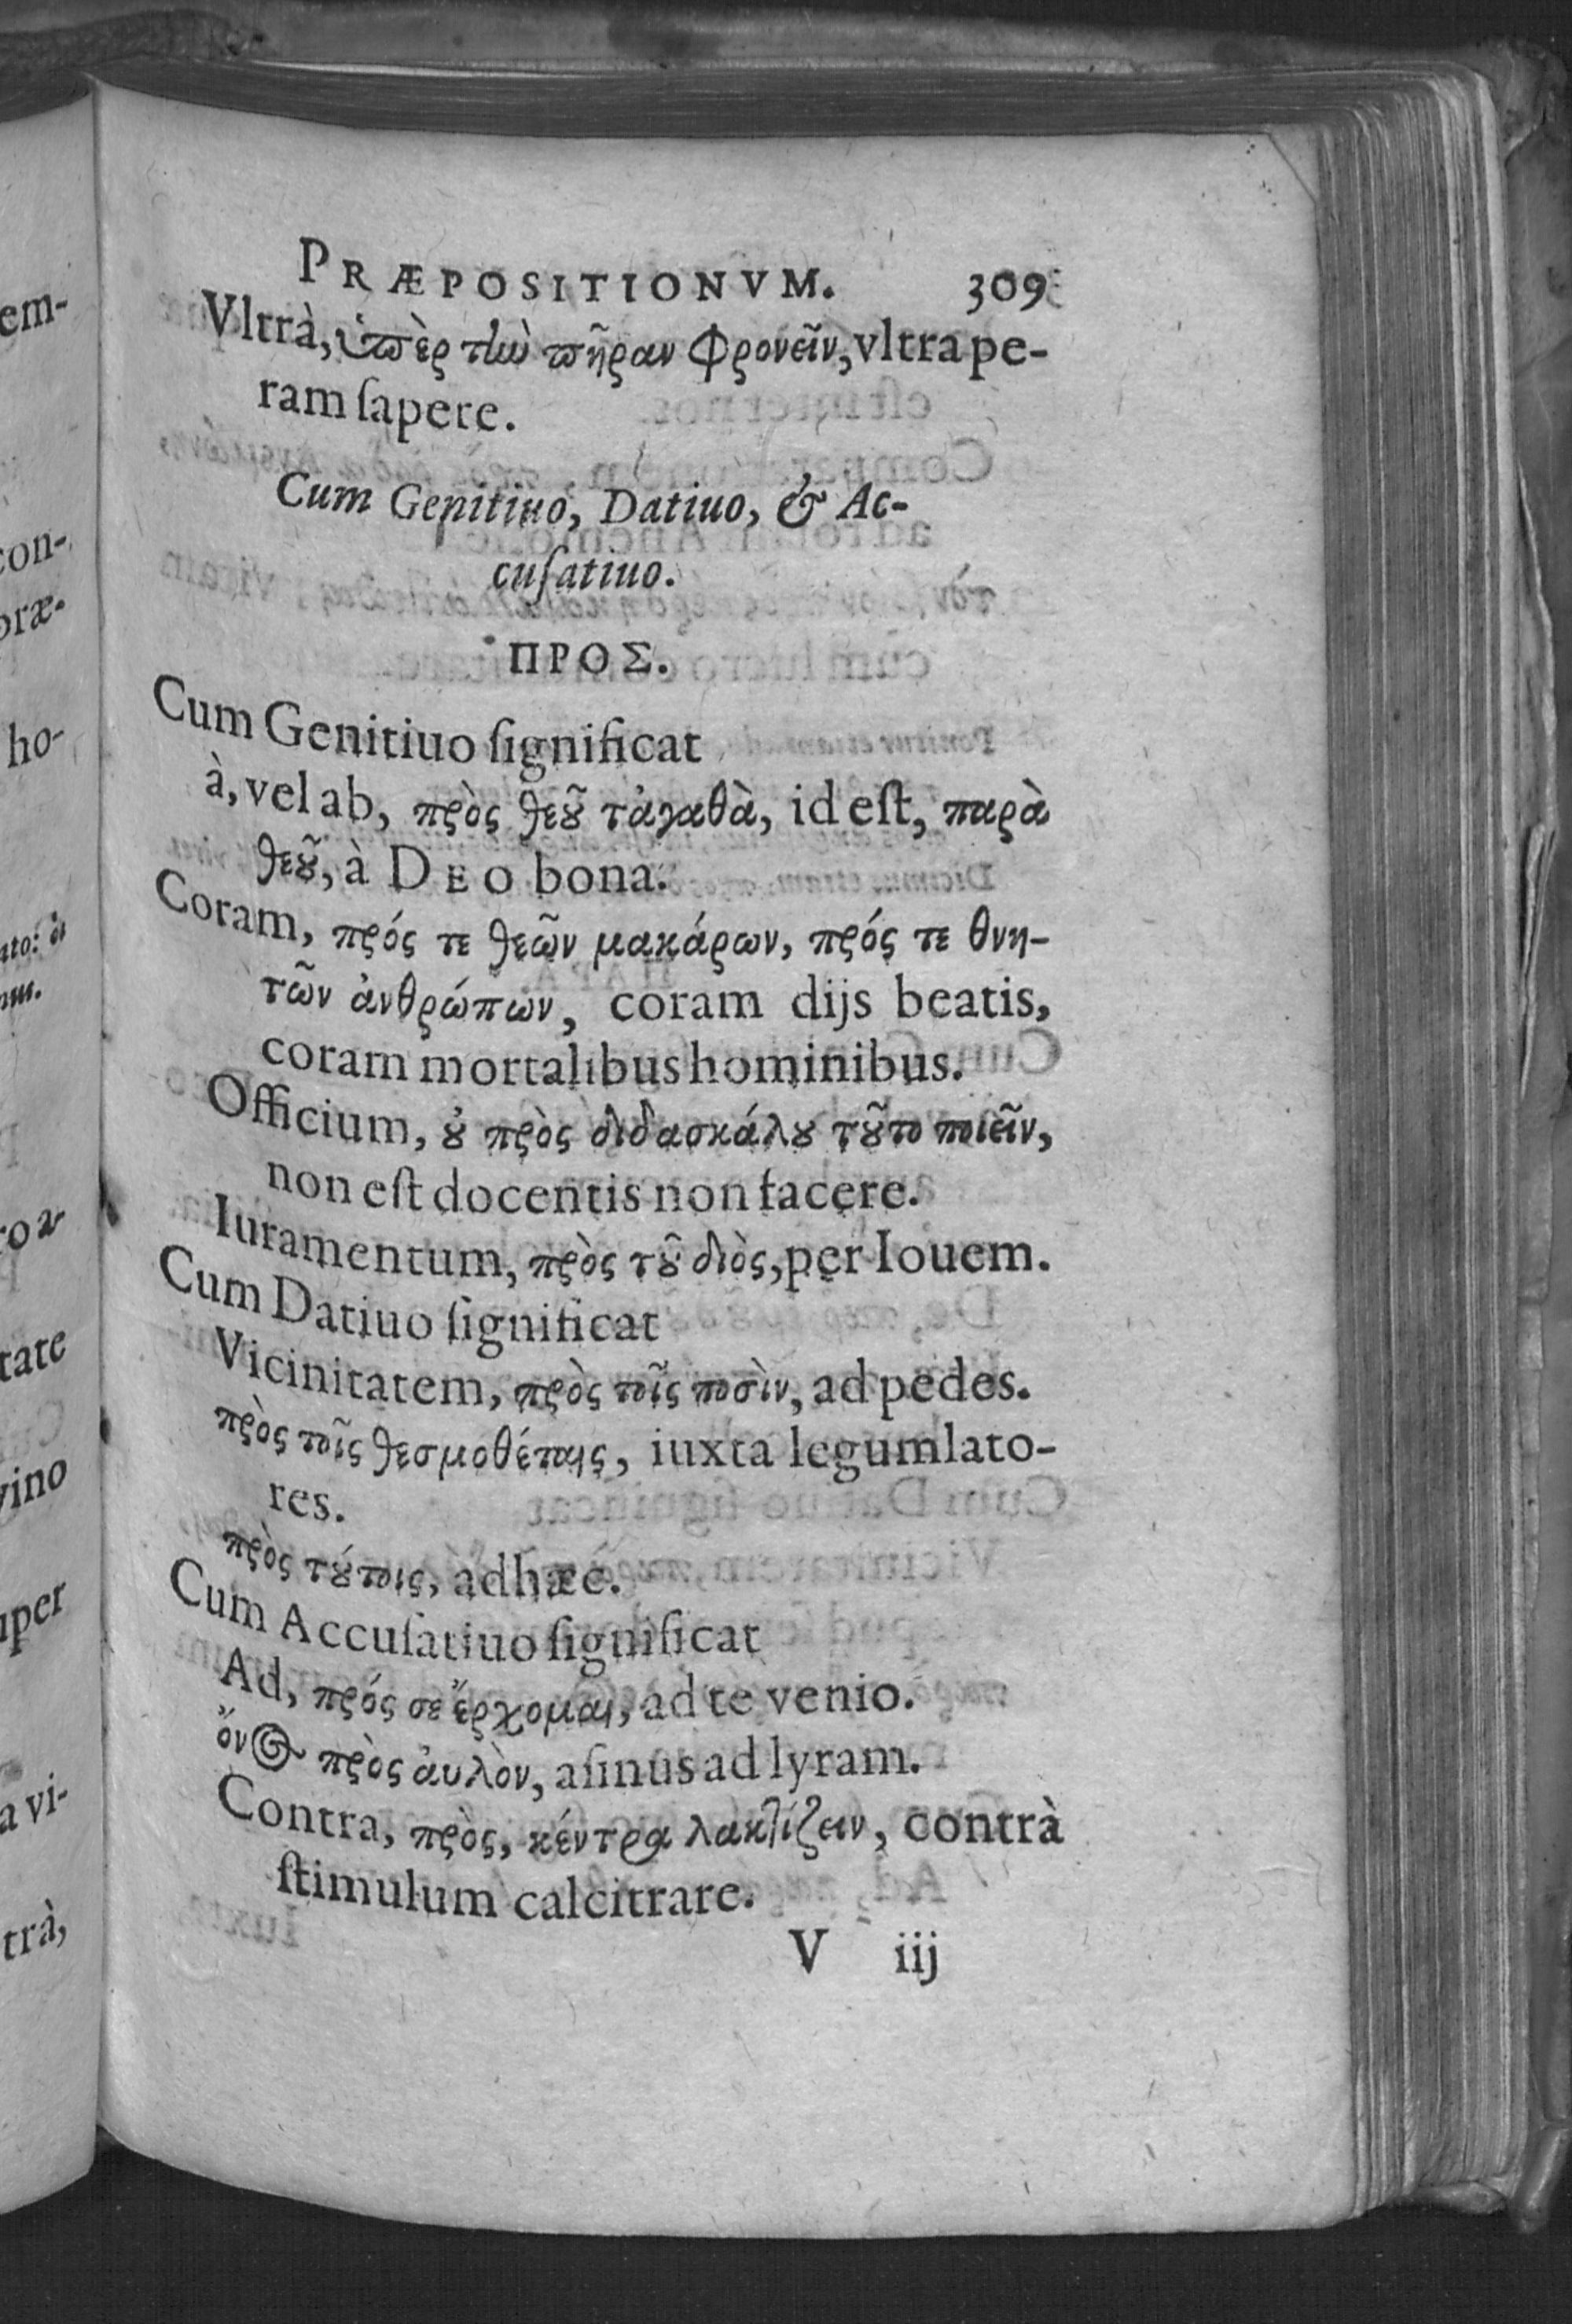 PRÆPOSITIONVM. 309
Vltrà, ὑπὲρ τὴν πῆραν φρονεῖν, vltra pe-
ram ſapere.
Cum Genitiuo, Datiuo, & Ac-
cuſatiuo.
ΠΡΟΣ.
Cum Genitiuo ſignificat
à, vel ab, πρὸς θεοῦ τἀγαθὰ, id eſt, παρὰ
θεοῦ, à DEO bona.
Coram, πρός τε θεῶν μακάρων, πρός τε θνη-
τῶν ἀνθρώπων, coram dijs beatis,
coram mortalibus hominibus.
Officium, οὐ πρὸς διδασκάλου τοῦτο ποιεῖν,
non eſt docentis non facere.
Iuramentum, πρὸς τοῦ διὸς, per Iouem.
Cum Datiuo ſignificat
Vicinitatem, πρὸς τοῖς ποσὶν, ad pedes.
πρὸς τοῖς θεσμοθέταις, iuxta legumlato-
res.
πρὸς τούτοις, ad hæc.
Cum Accuſatiuo ſignificat
Ad, πρός σε ἔρχομαι, ad te venio.
ὄνος πρὸς ἀυλὸν, aſinus ad lyram.
Contra, πρὸς, κέντρα λακτίζειν, contrà
ſtimulum calcitrare.
V iij
em-
con-
præ-
ho-
tate
vino
uper
a vi-
trà,